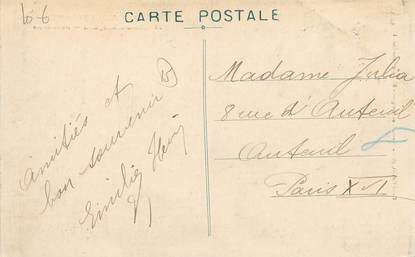 CARTE POSTALE
Amitiés et
bon souvenir
Emilie
Madame Julia
8 rue d'Auteuil
Auteuil
Paris XVI